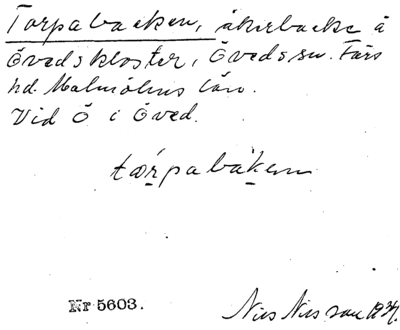 Torpabacken, åkerbacke å
Övedskloster, Öveds sn. Färs
hd. Malmöhus län.
Vid Ö i Öved.
tɷ̀rpabákenn
Nr 5603.
Nils Nilsson 1934.